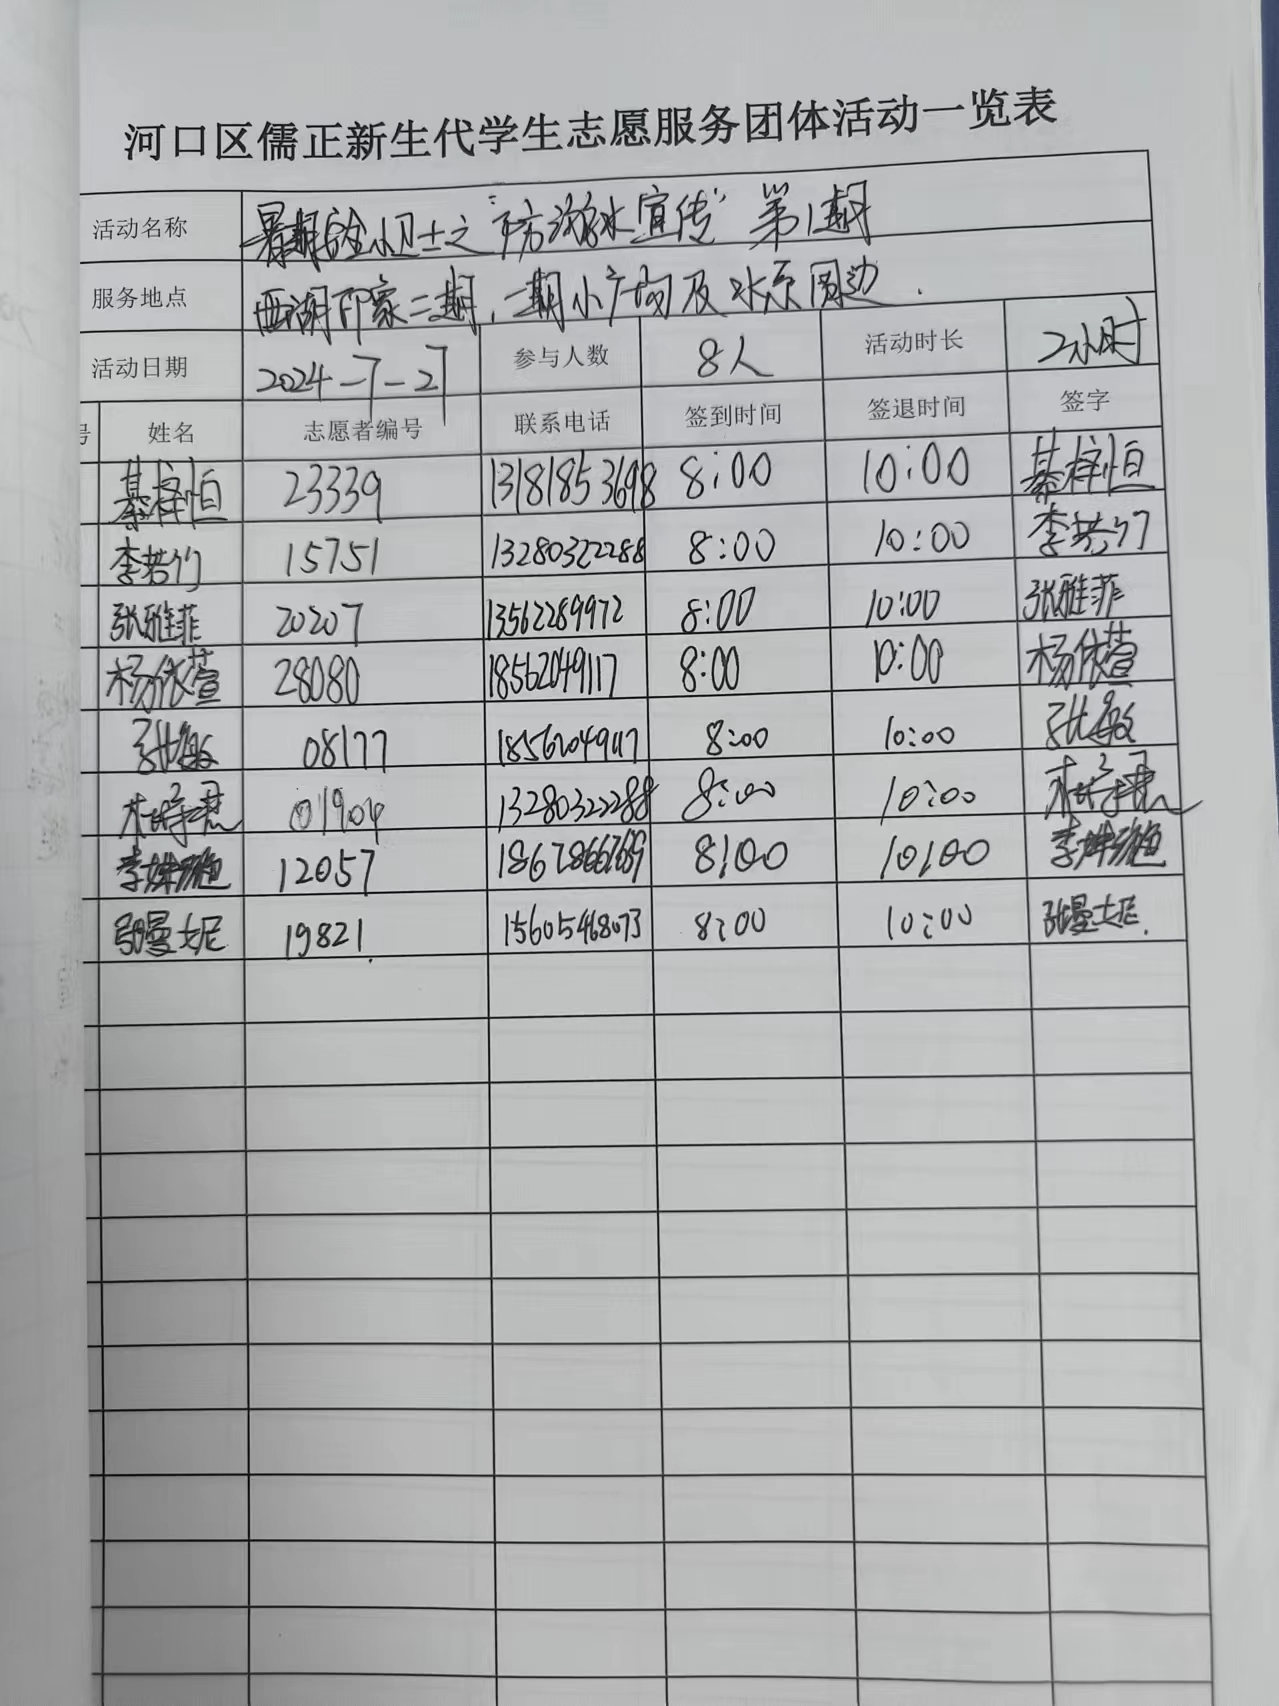 河口区儒正新生代学生志愿服务团体活动一览表
活动名称 暑期安全小卫士之“防溺水宣传”第1期
服务地点 西湖印象三期,二期小广场及水系周边.
活动日期 2024-7-27 参与人数 8人 活动时长 2小时
号 姓名 志愿者编号 联系电话 签到时间 签退时间 签字
綦梓恒 23339 13181853698 8:00 10:00 綦梓恒
李若竹 15751 13280322288 8:00 10:00 李若竹
张雅菲 20207 13562289972 8:00 10:00 张雅菲
杨依萱 28080 18562049117 8:00 10:00 杨依萱
张敏 08177 18562049117 8:00 10:00 张敏
01904 13280322288 8:00 10:00
李 12057 18678667669 8:00 10:00 李
张曼妮 19821. 15605468073 8:00 10:00 张曼妮.